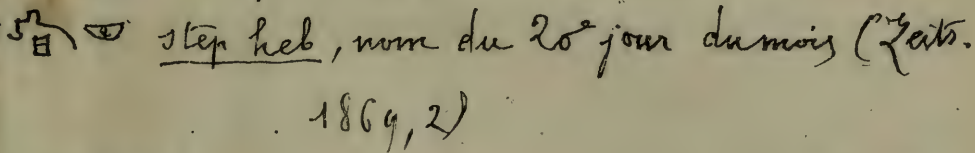 step heb, nom du 20e jour du mois (Zeits.
1869, 2)